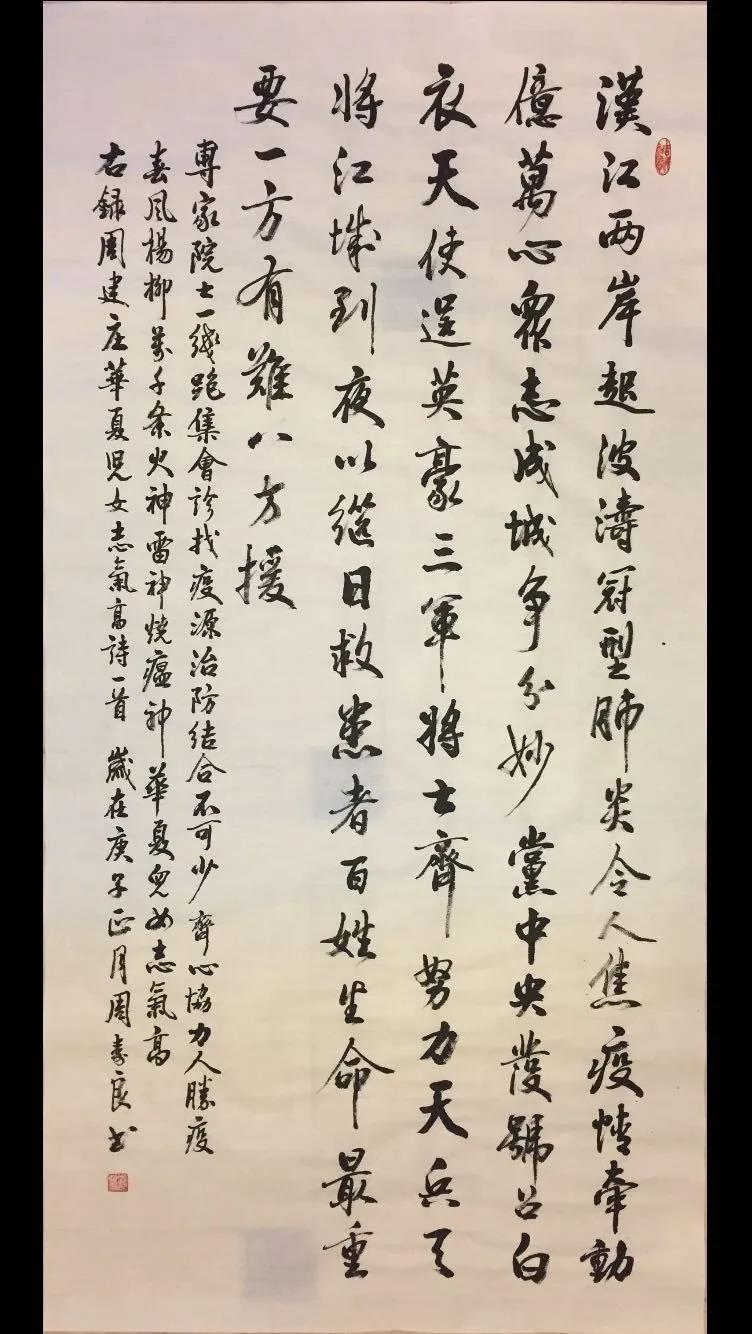 漢江两岸起波濤冠型肺炎令人焦疫情牽動
億萬心眾志成城争分妙黨中央發號召白
衣天使逞英豪三軍將士齊努力天兵天
將江城到夜以继日救患者百姓生命最重
要一方有難八方援
專家院士一线跑集會診找疫源治防结合不可少齊心協力人勝疫
春风楊柳萬千条火神雷神燒瘟神華夏兒女志氣高
右錄周建庄華夏児女志氣高詩一首 歲在庚子正月周壽良书